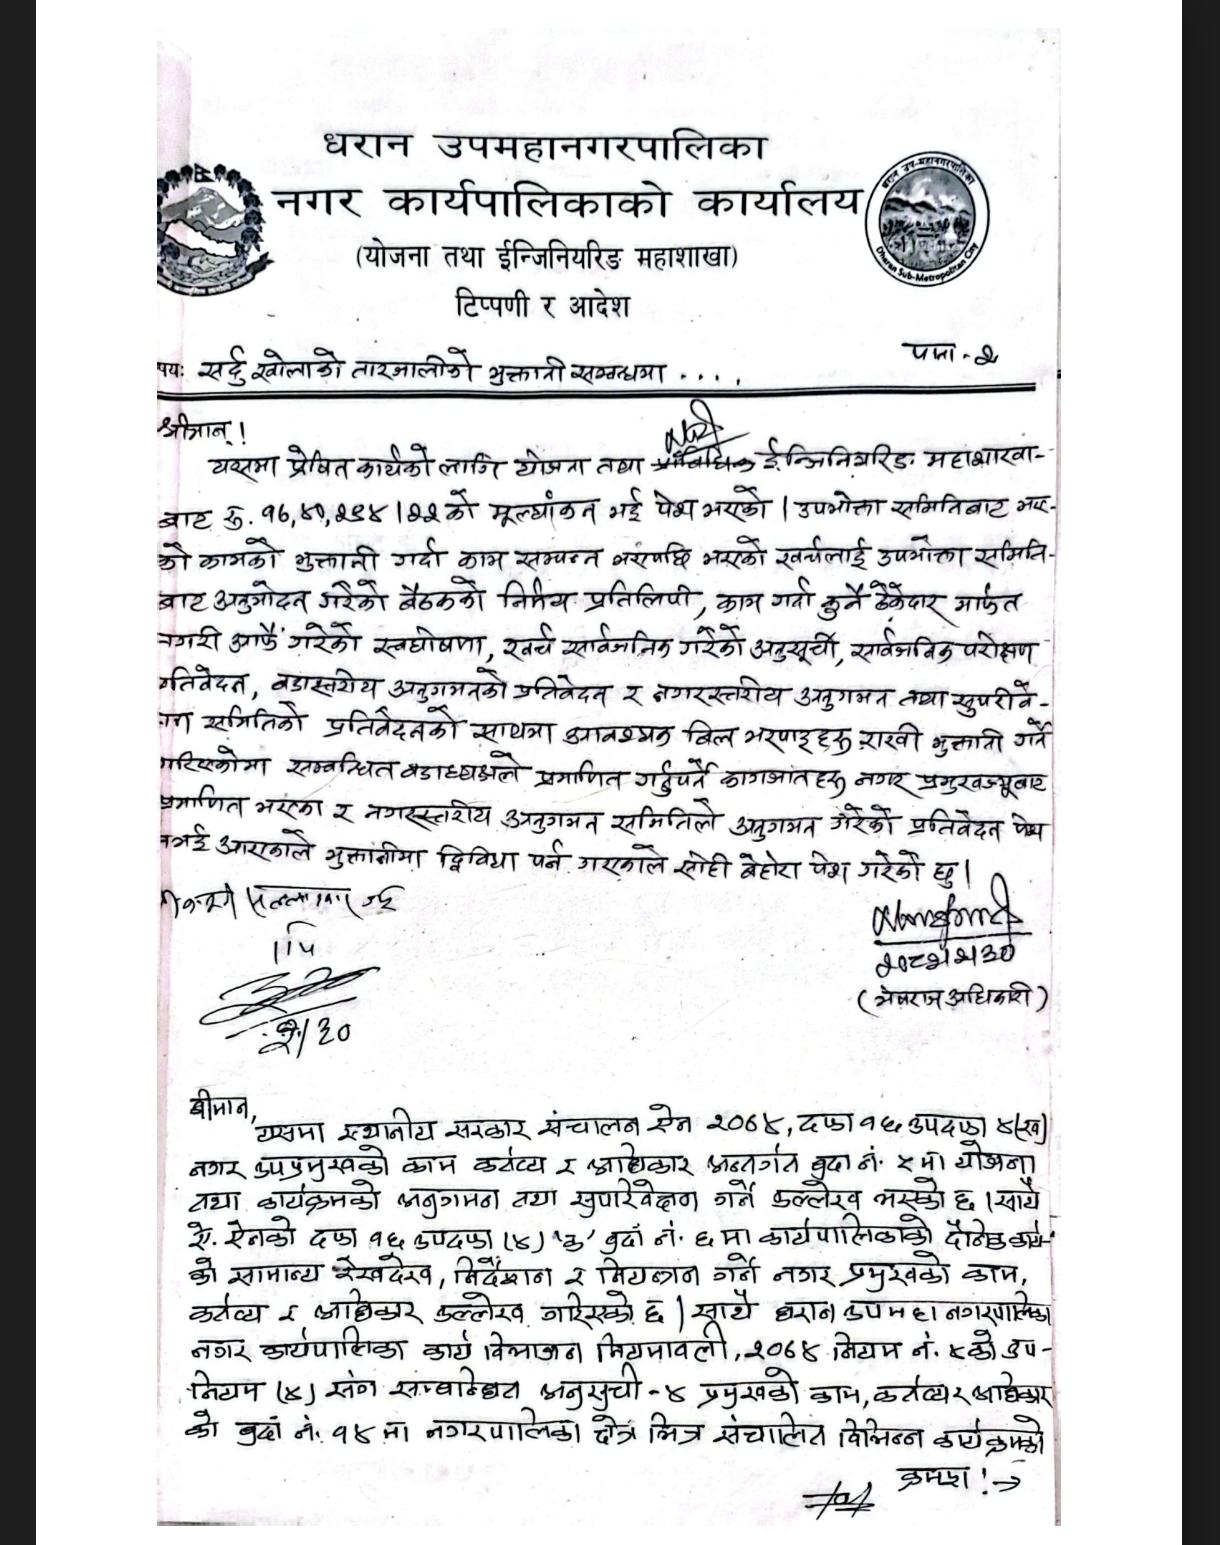 धरान उपमहानगरपालिका
नगर कार्यपालिकाको कार्यालय
(योजना तथा ईन्जिनियरिङ महाशाखा)
टिप्पणी र आदेश
धरान उप-महानगरपालिका
Dharan Sub-Metropolitan City
पाना-२
षय: सर्दु खोलाको तारजालीको भुक्तानी सम्बन्धमा ....
श्रीमान्!
यसमा प्रेषित कार्यको लागि योजना तथा प्राविधिक ईन्जिनियरिङ महाशाखा-
बाट रु. को मूल्यांकन भई पेश भएको। उपभोक्ता समितिबाट भए-
को कामको भुक्तानी गर्दा काम सम्पन्न भएपछि भएको खर्चलाई उपभोक्ता समिति-
बाट अनुमोदन गरेको बैठकको निर्णय प्रतिलिपी, काम गर्दा कुनै ठेकेदार मार्फत
नगरी आफै गरेको स्वघोषणा, खर्च सार्वजनिक गरेको अनुसूची, सार्वजनिक परीक्षण
प्रतिवेदन, वडास्तरीय अनुगमनको प्रतिवेदन र नगरस्तरीय अनुगमन तथा सुपरीवे-
समितिको प्रतिवेदनको साथमा आवश्यक बिल भरपाइहरु राखी भुक्तानी गर्ने
गरिएकोमा सम्बन्धित वडाध्यक्षले प्रमाणित गर्नुपर्ने कागजातहरु नगर प्रमुखज्यूबाट
प्रमाणित भएका र नगरस्तरीय अनुगमन समितिले अनुगमन गरेको प्रतिवेदन पेश
नभई आएकाले भुक्तानीमा द्विविधा पर्न गएकाले सोही बेहोरा पेश गरेको छु।
(मेघराज अधिकारी)
श्रीमान,
यसमा स्थानीय सरकार संचालन ऐन २०७४, दफा १६ उपदफा ४(ख)
नगर उपप्रमुखको काम कर्तव्य र अधिकार अन्तर्गत बुदा नं. २ मा योजना
तथा कार्यक्रमको अनुगमन तथा सुपरिवेक्षण गर्ने उल्लेख भएको छ। साथै
ऐ. ऐनको दफा १६ उपदफा (४) 'क' बुदाँ नं. ६ मा कार्यपालिकाको दैनिक कार्य-
को सामान्य रेखदेख, निर्देशन र नियन्त्रण गर्ने नगर प्रमुखको काम,
कर्तव्य र अधिकार उल्लेख गरिएको छ। साथै धरान उपमहानगरपालिका
नगर कार्यपालिका कार्य विभाजन नियमावली, २०७४ नियम नं. ४ को उप-
नियम (४) संग सम्बन्धित अनुसुची-४ प्रमुखको काम, कर्तव्य र अधिकार
को बुदाँ नं. १४ मा नगरपालिका क्षेत्र भित्र संचालित विभिन्न कार्यक्रमको
क्रमश! →